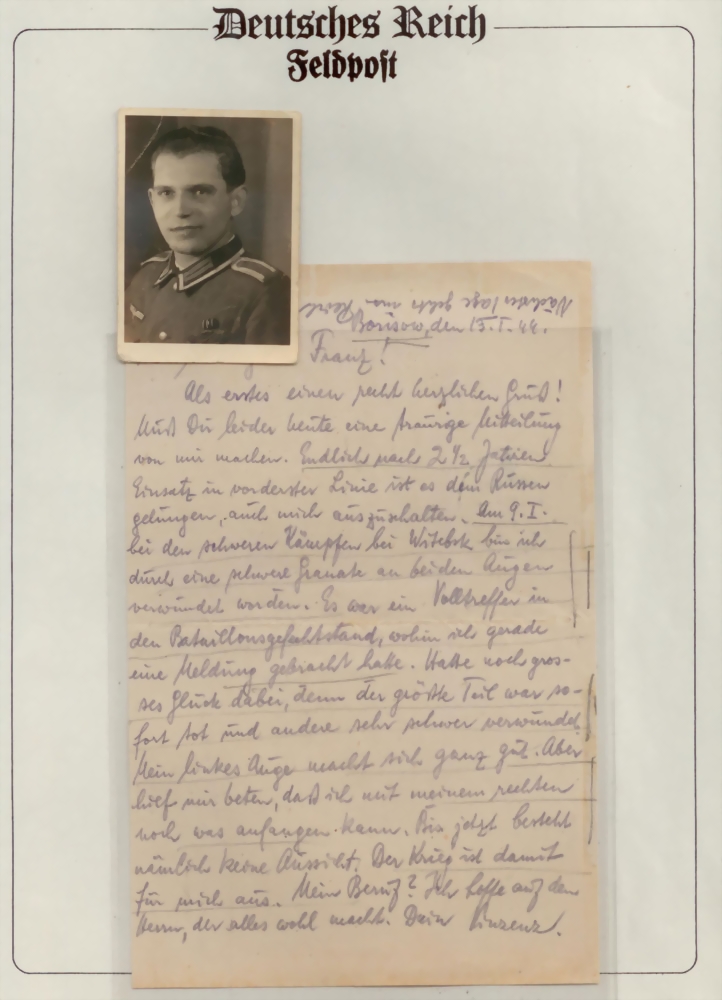 Deutsches Reich
Feldpost
Nächster Tage geht's ins Reich
Borissow, den 15.I.44.
Franz!
Als erstes einen recht herzlichen Gruß!
Muß Dir leider heute eine traurige Mitteilung
von mir machen. Endlich nach 2 1/2 Jahren
Einsatz in vorderster Linie ist es dem Russen
gelungen, auch mich auszuschalten. Am 9.I.
bei den schweren Kämpfen bei Witebsk bin ich
durch eine schwere Granate an beiden Augen
verwundet worden. Es war ein Volltreffer in
den Bataillonsgefechtsstand, wohin ich gerade
eine Meldung gebracht habe. Hatte noch gros-
ses Glück dabei, denn der größte Teil war so-
fort tot und andere sehr schwer verwundet
Mein linkes Auge macht sich ganz gut. Aber
hilf mir beten, daß ich mit meinem rechten
noch was anfangen kann. Bis jetzt besteht
nämlich keine Aussicht. Der Krieg ist damit
für mich aus. Mein Beruf? Ich hoffe auf den
Herrn, der alles wohl macht. Dein Vinzenz.